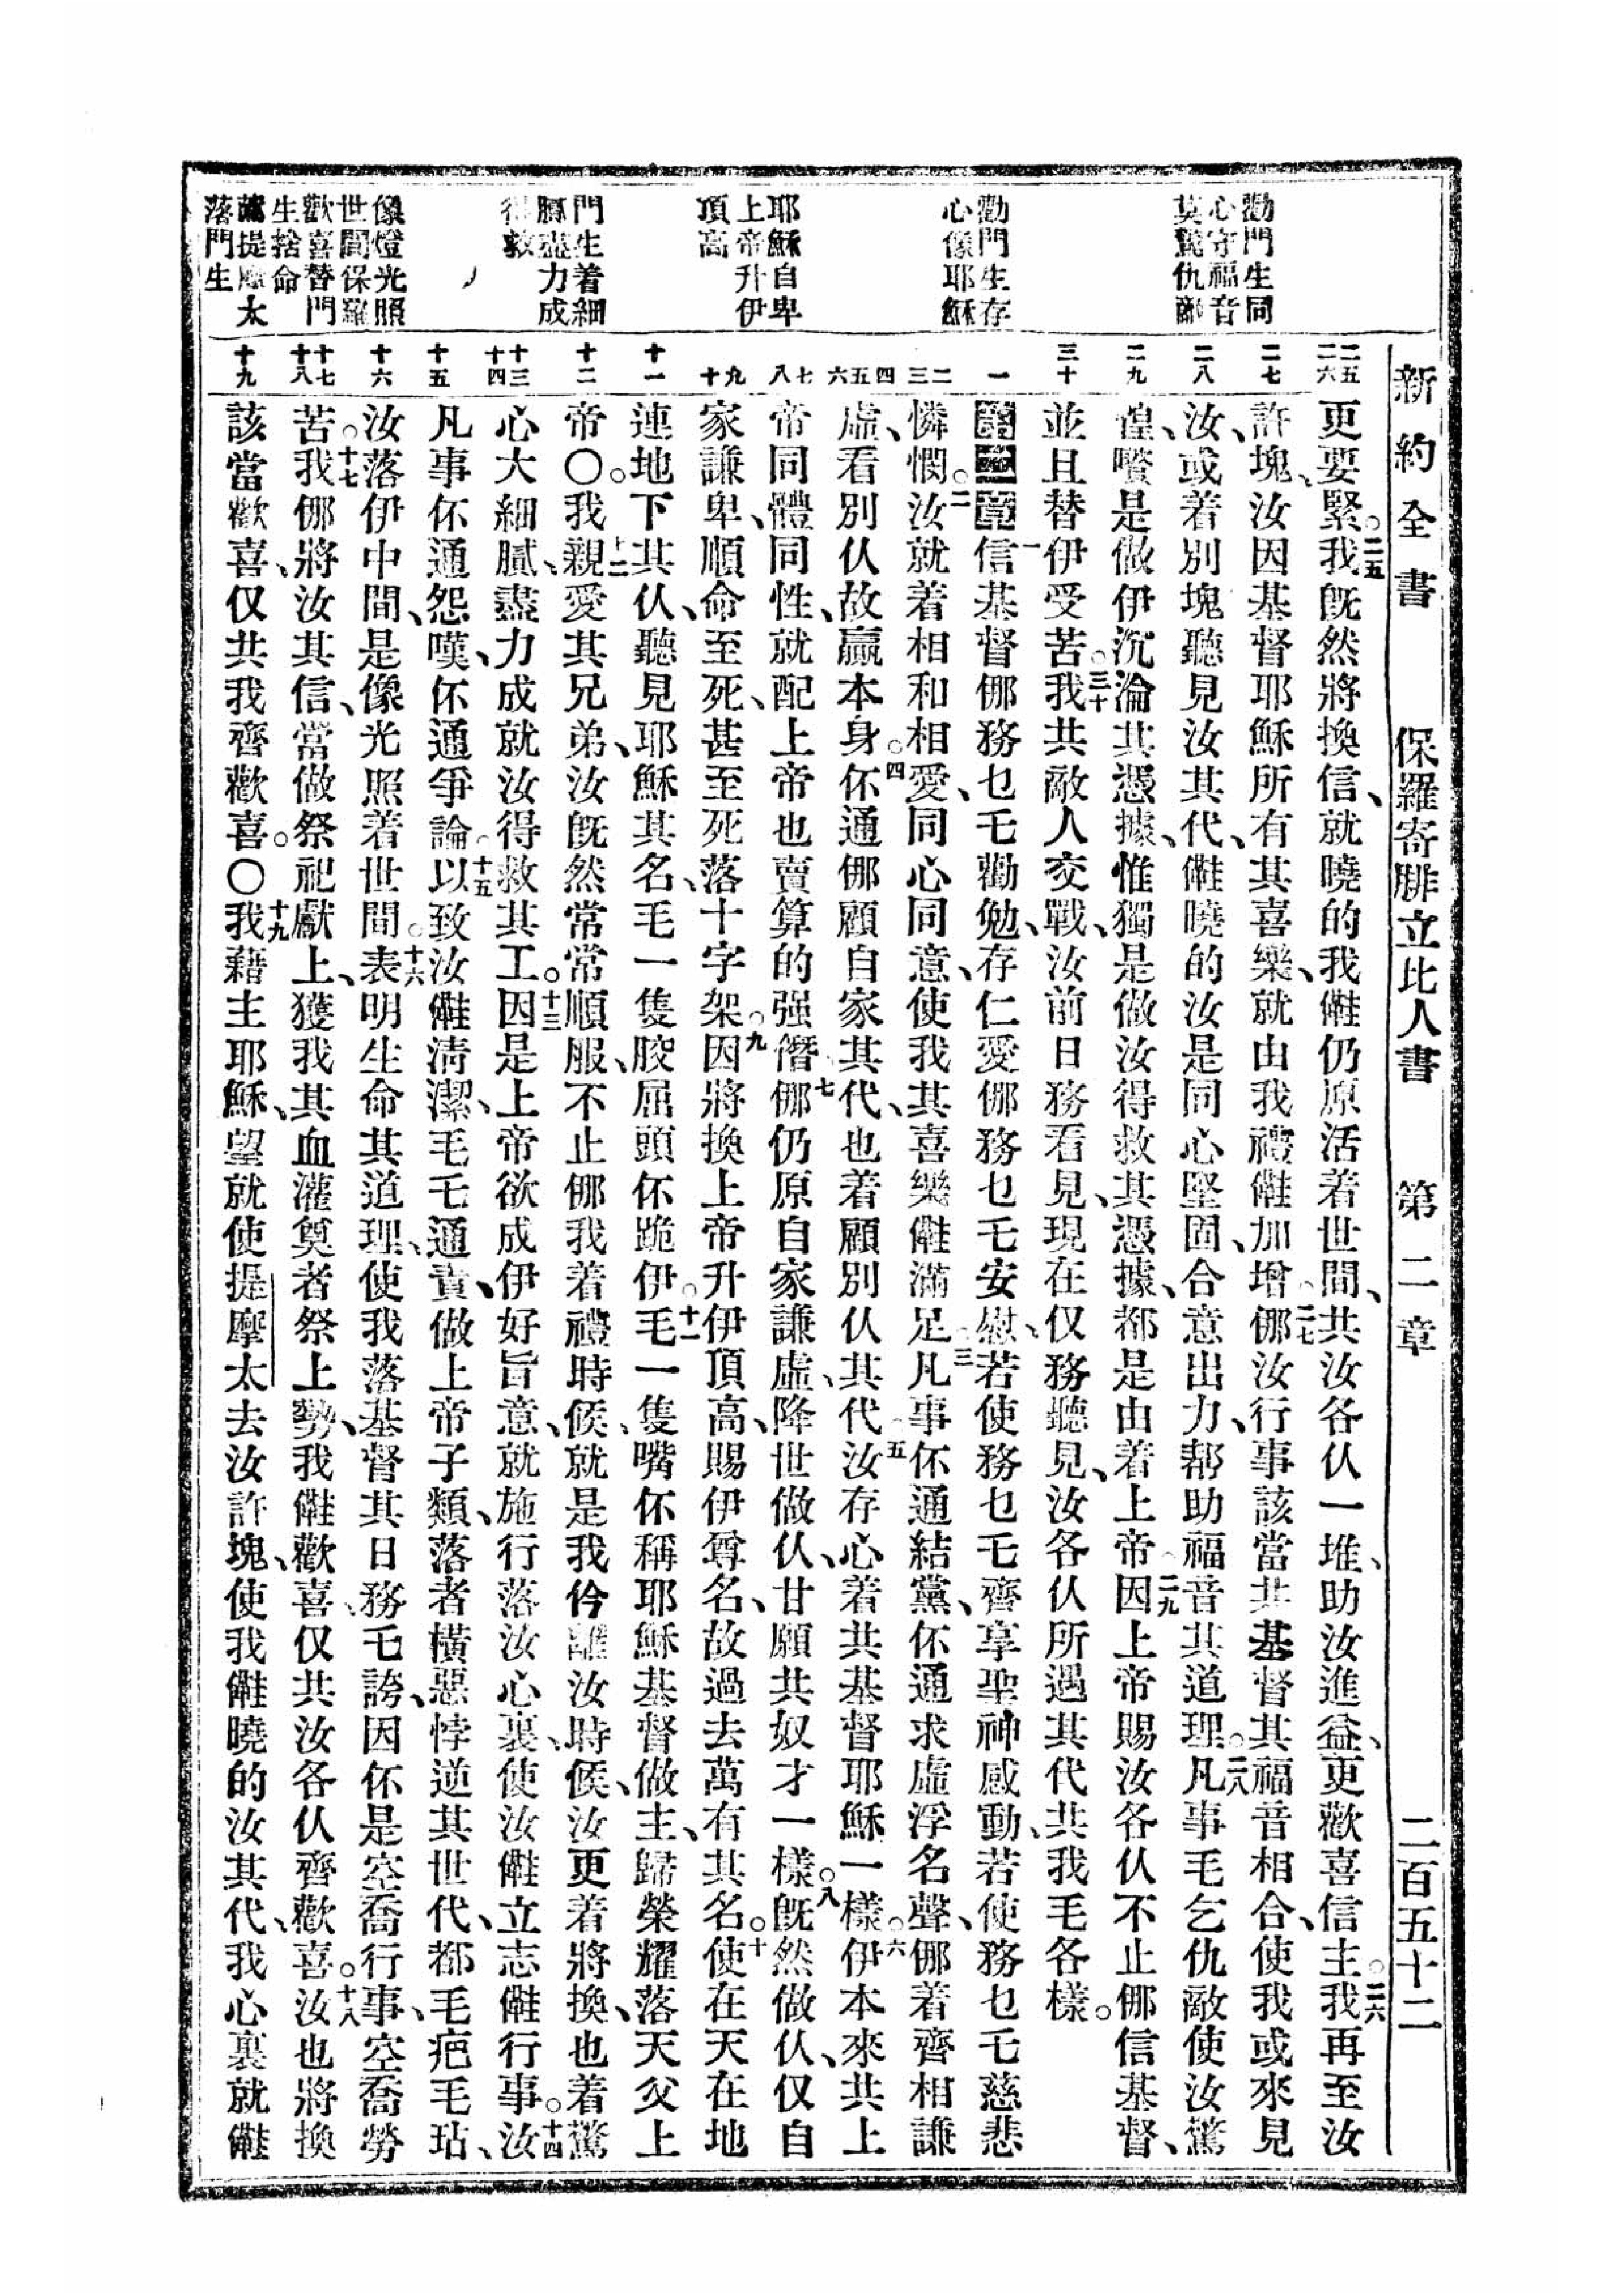 新約全書 保羅寄腓立比人書 第二章 二百五十二
勸門生同
心守福音
莫驚仇敵
勸門生存
心像耶穌
耶穌自卑
上帝升伊
頂高
門生着細
膩盡力成
得救
像燈光照
世間保羅
歡喜替門
生捨命
薦提摩太
落門生
二五
二六
二七
二八
二九
三十
一
二
三
四
五
六
七
八
九
十
十一
十二
十三
十四
十五
十六
十七
十八
十九
更要緊。二五我旣然將換信、就曉的我㒰仍原活着世間、共汝各仈一堆、助汝進益、更歡喜信主。二六我再至汝
許塊、汝因基督耶穌所有其喜樂、就由我禮㒰加增。二七㑚汝行事該當共基督其福音相合、使我或來見
汝、或着別塊聽見汝其代、㒰曉的汝是同心堅固、合意出力、幫助福音其道理。二八凡事毛乞仇敵使汝驚
惶、嚽是做伊沉淪其憑據、惟獨是做汝得救其憑據、都是由着上帝。二九因上帝賜汝各仈不止㑚信基督、
並且替伊受苦。三十我共敵人交戰、汝前日務看見、現在仅務聽見、汝各仈所遇其代共我毛各樣。
第二章 一信基督㑚務乜乇勸勉、存仁愛㑚務乜乇安慰、若使務乜乇齊享聖神感動、若使務乜乇慈悲
憐憫。二汝就着相和相愛、同心同意、使我其喜樂㒰滿足。三凡事伓通結黨、伓通求虛浮名聲、㑚着齊相謙
虛、看別仈故贏本身。四伓通㑚顧自家其代、也着顧別仈其代。五汝存心着共基督耶穌一樣。六伊本來共上
帝同體同性、就配上帝也賣算的强僭。七㑚仍原自家謙虛、降世做仈、甘願共奴才一樣。八旣然做仈、仅自
家謙卑、順命至死、甚至死落十字架。九因將換上帝升伊頂高、賜伊尊名、故過去萬有其名。十使在天在地
連地下其仈、聽見耶穌其名、毛一隻骹屈頭伓跪伊。十一毛一隻嘴伓稱耶穌基督做主、歸榮耀落天父上
帝。〇十二我親愛其兄弟、汝旣然常常順服、不止㑚我着禮時候、就是我仱離汝時候、汝更着將換、也着驚
心大細膩、盡力成就汝得救其工。十三因是上帝欲成伊好旨意、就施行落汝心裏、使汝㒰立志㒰行事。十四汝
凡事伓通怨嘆、伓通爭論。十五以致汝㒰淸潔、毛乇通責、做上帝子類、落者橫惡悖逆其世代、都毛疤毛玷、
汝落伊中間、是像光照着世間。十六表明生命其道理、使我落基督其日務乇誇、因伓是空喬行事、空喬勞
苦。十七我㑚將汝其信、當做祭祀獻上、獲我其血灌奠者祭上勢、我㒰歡喜、仅共汝各仈齊歡喜。十八汝也將換
該當歡喜、仅共我齊歡喜。〇十九我藉主耶穌、望就使提摩太去汝許塊、使我㒰曉的汝其代、我心裏就㒰